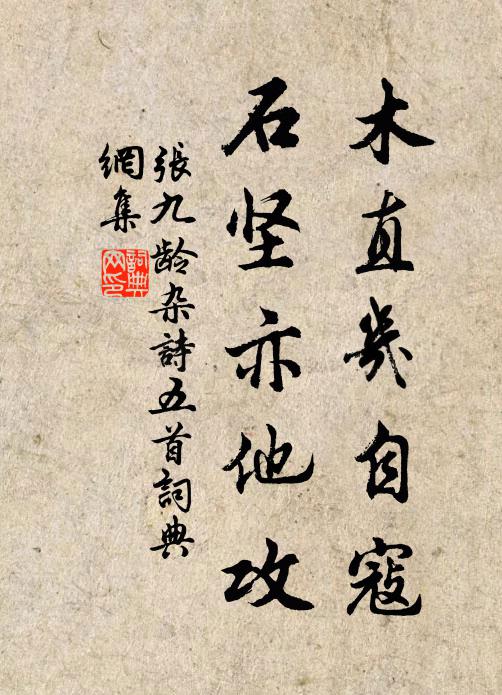 木直幾自寇
石坚亦他攻
張九龄杂詩五首詞典
網集
詞典
网印